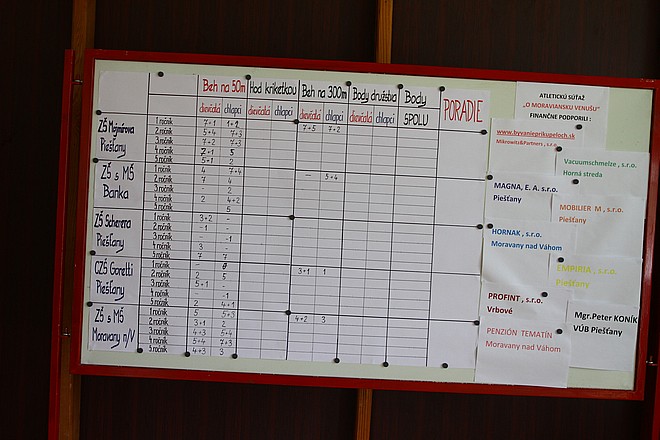 Beh na 50m Hod kriketkou Beh na 300m Body družstva Body SPOLU PORADIE
dievčatá chlapci dievčatá chlapci dievčatá chlapci dievčatá chlapci
ZŠ Mojmírova Piešťany
1. ročník 7+1 1+1 7+5 7+2
2. ročník 5+4 7+3
3. ročník 7+2 7+3
4. ročník 7+1 5
5. ročník 5+1 2
ZŠ s MŠ Banka
1. ročník 4 7+4 - 5+4
2. ročník 7 4
3. ročník - 2
4. ročník 2 4+2
5. ročník 5
ZŠ Scherera Piešťany
1. ročník 3+2 -
2. ročník -1 -
3. ročník - -1
4. ročník 3 -
5. ročník 7 7
CZŠ Goretti Piešťany
1. ročník - 3+1 1
2. ročník 2 5
3. ročník 5+1 -
4. ročník -1
5. ročník 2 4+1
ZŠ s MŠ Moravany n/V
1. ročník 5 5+3 4+2 3
2. ročník 3+1 2
3. ročník 4+3 5+4
4. ročník 5+4 7+3
5. ročník 4+3 3
ATLETICKÚ SÚŤAŽ
"O MORAVIANSKU VENUŠU"
FINANČNE PODPORILI :
www.byvanieprikupeloch.sk
Mikrowitz&Partners , s.r.o.
Vacuumschmelze , s.r.o.
Horná streda
MAGNA, E. A. s.r.o.
Piešťany
MOBILIER M , s.r.o.
Piešťany
HORNAK , s.r.o.
Moravany nad Váhom
EMPIRIA , s.r.o.
Piešťany
PROFINT , s.r.o.
Vrbové
Mgr.Peter KONÍK
VÚB Piešťany
PENZIÓN TEMATÍN
Moravany nad Váhom